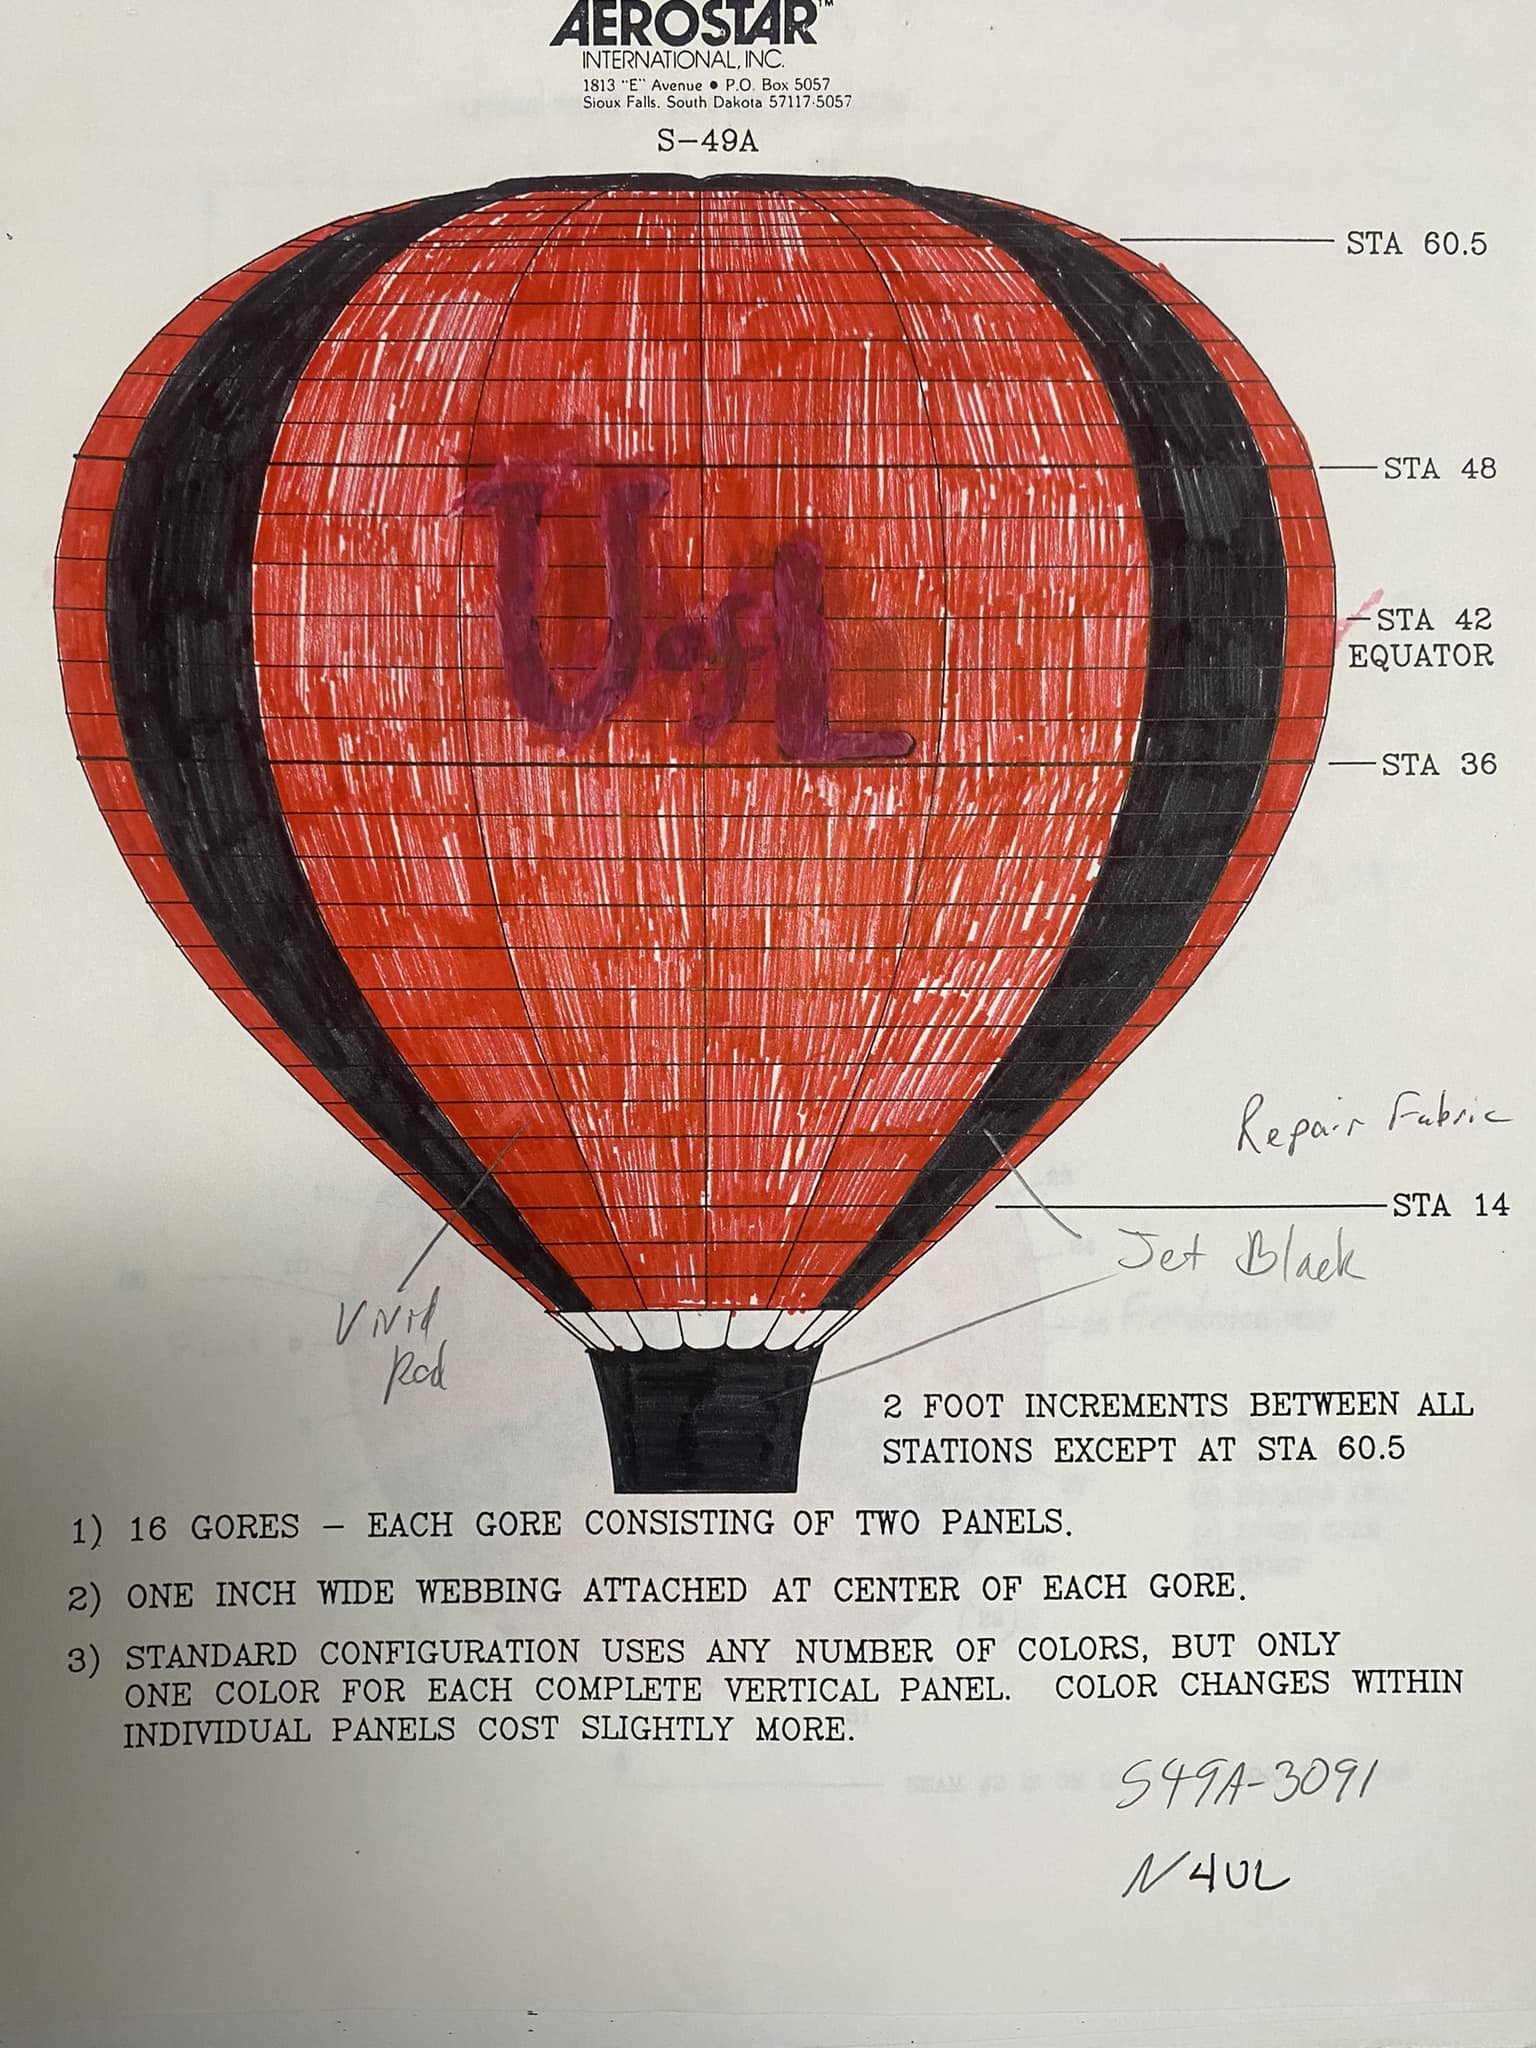 AEROSTAR™
INTERNATIONAL, INC.
1813 "E" Avenue • P.O. Box 5057
Sioux Falls, South Dakota 57117-5057
S-49A
STA 60.5
STA 48
U of L
STA 42
EQUATOR
STA 36
Repair Fabric
STA 14
Jet Black
Vivid
Red
2 FOOT INCREMENTS BETWEEN ALL
STATIONS EXCEPT AT STA 60.5
1) 16 GORES - EACH GORE CONSISTING OF TWO PANELS.
2) ONE INCH WIDE WEBBING ATTACHED AT CENTER OF EACH GORE.
3) STANDARD CONFIGURATION USES ANY NUMBER OF COLORS, BUT ONLY
ONE COLOR FOR EACH COMPLETE VERTICAL PANEL. COLOR CHANGES WITHIN
INDIVIDUAL PANELS COST SLIGHTLY MORE.
S49A-3091
N4UL